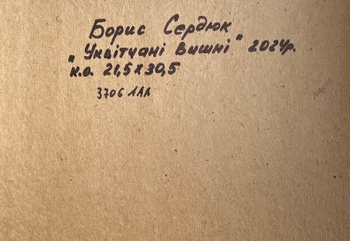 Борис Сердюк
„Уквітчані вишні" 2024р.
к.о. 21,5х30,5
3706 ЛАА